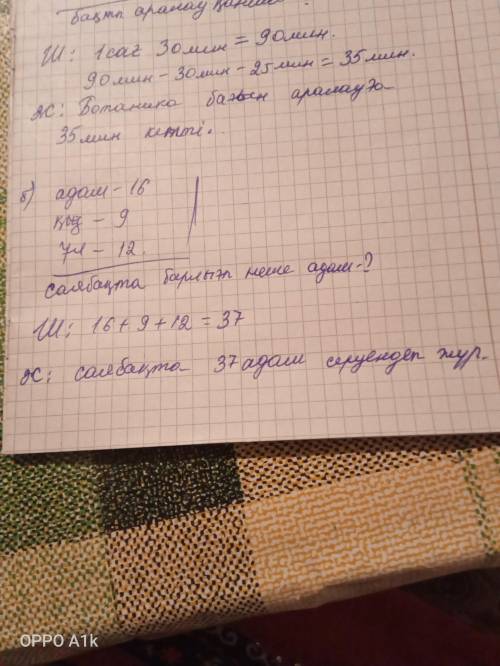 бақты аралау
Ш: 1 сағ 30 мин = 90 мин.
90 мин - 30 мин - 25 мин = 35 мин.
Ж: Ботаника бағын аралауға
35 мин кетті.
б) адам - 16
қыз - 9
ұл - 12.
саябақта барлығы неше адам-?
Ш: 16 + 9 + 12 = 37
Ж: саябақта 37 адам серуендеп жүр.
OPPO A1k